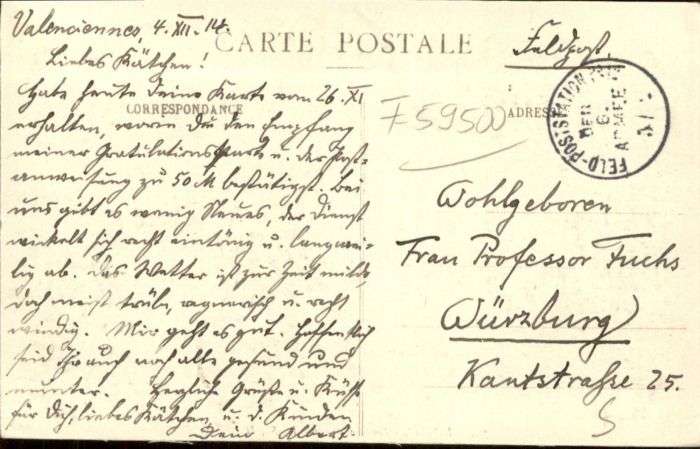 Valenciennes, 4. XII. 14.
CARTE POSTALE
Feldpost.
Liebes Kätchen!
Habe heute deine Karte vom 26. XI
CORRESPONDANCE
erhalten, worin Du den Empfang
meiner Gratulationskarte u. der Post-
anweisung zu 50 M bestätigst. Bei
uns gibt es wenig Neues, der Dienst
wickelt sich recht eintönig u. langwei-
lig ab. Das Wetter ist zur Zeit milde,
doch meist trübe, regnerisch u. recht
windig. Mir geht es gut. Hoffentlich
seid Ihr auch noch alle gesund und
munter. Herzliche Grüße u. Küsse
für Dich, liebes Kätchen, u. d. Kinder
Dein Albert.
F 59500
ADRESSE
FELD-POSTSTATION
DER
6.
ARMEE
Wohlgeboren
Frau Professor Fuchs
Würzburg
Kantstrasse 25.